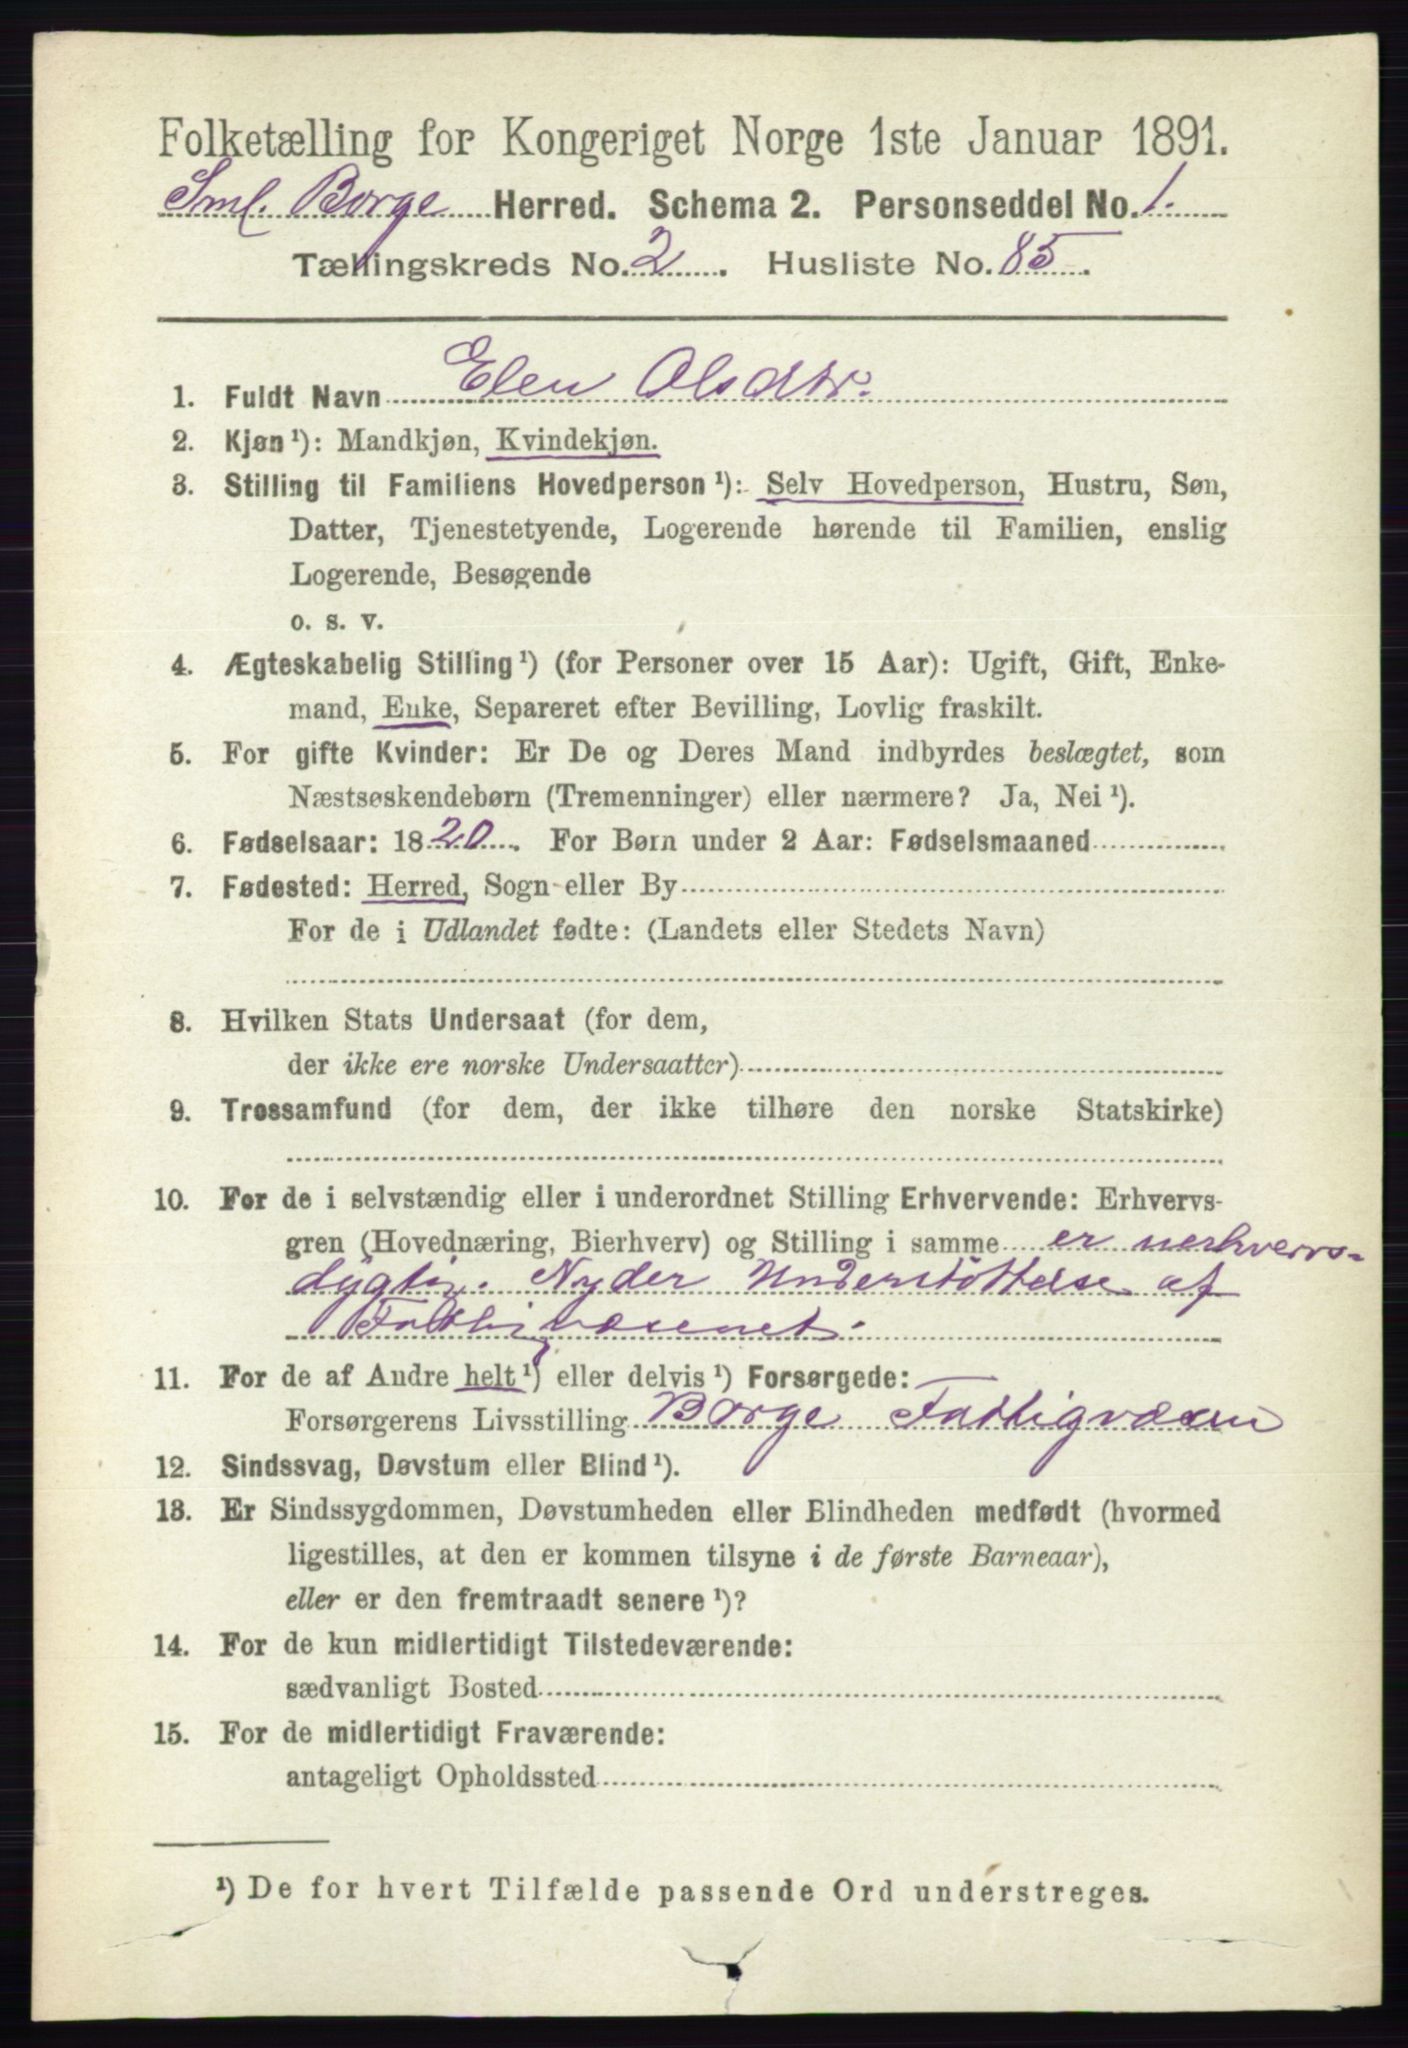 Folketælling for Kongeriget Norge 1ste Januar 1891.
Sml. Borge Herred. Schema 2. Personseddel No. 1.
Tællingskreds No. 2. Husliste No. 85.
1. Fuldt Navn Elen Olsdtr.
2. Kjøn ¹): Mandkjøn, Kvindekjøn.
3. Stilling til Familiens Hovedperson ¹): Selv Hovedperson, Hustru, Søn,
Datter, Tjenestetyende, Logerende hørende til Familien, enslig
Logerende, Besøgende
o. s. v.
4. Ægteskabelig Stilling ¹) (for Personer over 15 Aar): Ugift, Gift, Enke-
mand, Enke, Separeret efter Bevilling, Lovlig fraskilt.
5. For gifte Kvinder: Er De og Deres Mand indbyrdes beslægtet, som
Næstsøskendebørn (Tremenninger) eller nærmere? Ja, Nei ¹).
6. Fødselsaar: 1820. For Børn under 2 Aar: Fødselsmaaned
7. Fødested: Herred, Sogn eller By
For de i Udlandet fødte: (Landets eller Stedets Navn)
8. Hvilken Stats Undersaat (for dem,
der ikke ere norske Undersaatter)
9. Trossamfund (for dem, der ikke tilhøre den norske Statskirke)
10. For de i selvstændig eller i underordnet Stilling Erhvervende: Erhvervs-
gren (Hovednæring, Bierhverv) og Stilling i samme er uerhvervs-
dygtig. Nyder Understøttelse af
Fattigvæsenet.
11. For de af Andre helt ¹) eller delvis ¹) Forsørgede:
Forsørgerens Livsstilling Borge Fattigvæsen
12. Sindssvag, Døvstum eller Blind ¹).
13. Er Sindssygdommen, Døvstumheden eller Blindheden medfødt (hvormed
ligestilles, at den er kommen tilsyne i de første Barneaar),
eller er den fremtraadt senere ¹)?
14. For de kun midlertidigt Tilstedeværende:
sædvanligt Bosted
15. For de midlertidigt Fraværende:
antageligt Opholdssted
¹) De for hvert Tilfælde passende Ord understreges.